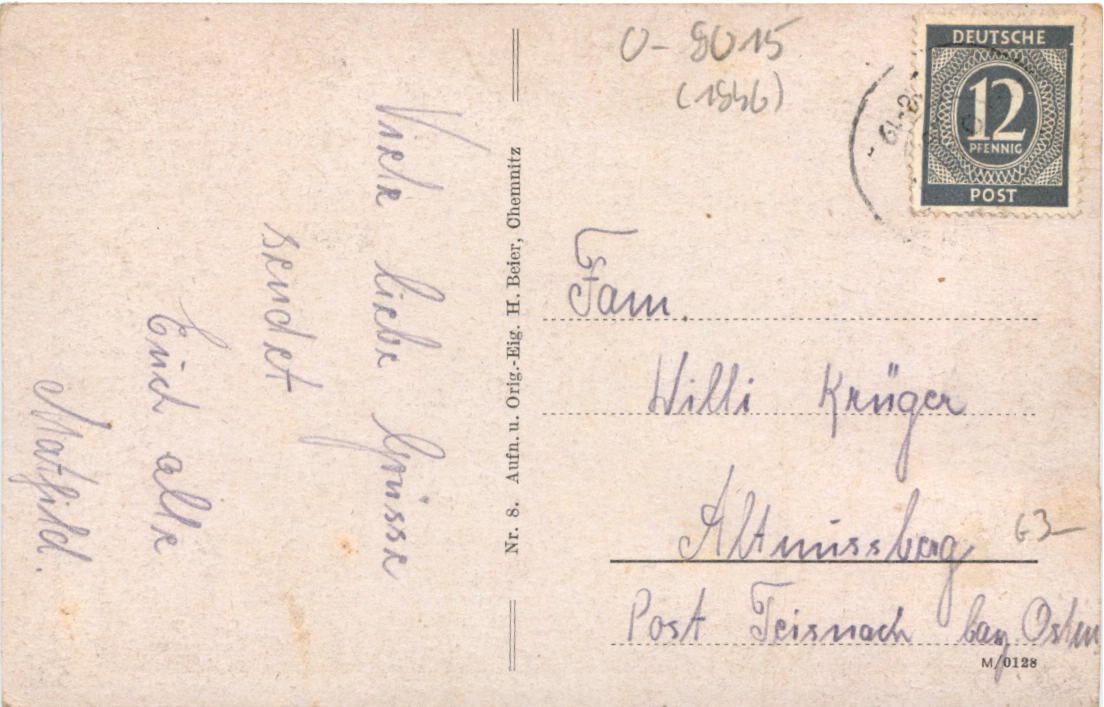 Viele liebe Grüsse
sendet
Euch alle
Mathild.
Nr. 8. Aufn. u. Orig.-Eig. H. Beier, Chemnitz
O-9015
(1946)
DEUTSCHE
12
PFENNIG
POST
Fam.
Willi Krüger
Altnussberg
63-
Post Teisnach bay. Osten
M/0128